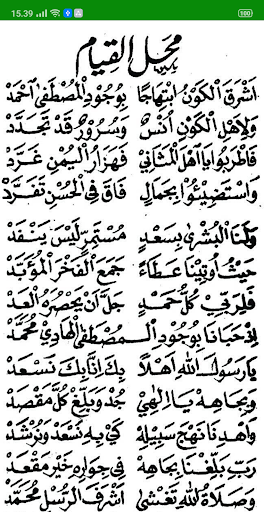 15.39
100
محل القيام
اَشْرَقَ الْكَوْنُ ابْتِهَاجًا بِوُجُودِ الْمُصْطَفَى احْمَدْ
وَلِاَهْلِ الْكَوْنِ اُنْسٌ وَسُرُورٌ قَدْ تَجَدَّدْ
فَاطْرَبُوا يَا اَهْلَ الْمَثَانِيْ فَهَزَارُ الْيُمْنِ غَرَّدْ
وَاسْتَضِيْئُوْا بِجَمَالٍ فَاقَ فِي الْحُسْنِ تَفَرَّدْ
وَلَنَا الْبُشْرٰى بِسَعْدٍ مُسْتَمِرٍّ لَيْسَ يَنْفَدْ
حَيْثُ اُوْتِيْنَا عَطَاءً جَمَعَ الْفَخْرَ الْمُؤَبَّدْ
فَلِرَبِّيْ كُلُّ حَمْدٍ جَلَّ اَنْ يَحْصُرَهُ الْعَدْ
اِذْ حَبَانَا بِوُجُودِ الْمُصْطَفَى الْهَادِيْ مُحَمَّدْ
يَا رَسُوْلَ اللهِ اَهْلًا بِكَ اِنَّا بِكَ نُسْعَدْ
وَبِجَاهِهْ يَا اِلٰهِيْ جُدْ وَبَلِّغْ كُلَّ مَقْصَدْ
وَاهْدِنَا نَهْجَ سَبِيْلِهْ كَيْ بِهِ نُسْعَدْ وَنُرْشَدْ
رَبِّ بَلِّغْنَا بِجَاهِهْ فِيْ جِوَارِهْ خَيْرَ مَقْعَدْ
وَصَلَاةُ اللهِ تَغْشٰى اَشْرَفَ الرُّسْلِ مُحَمَّدْ